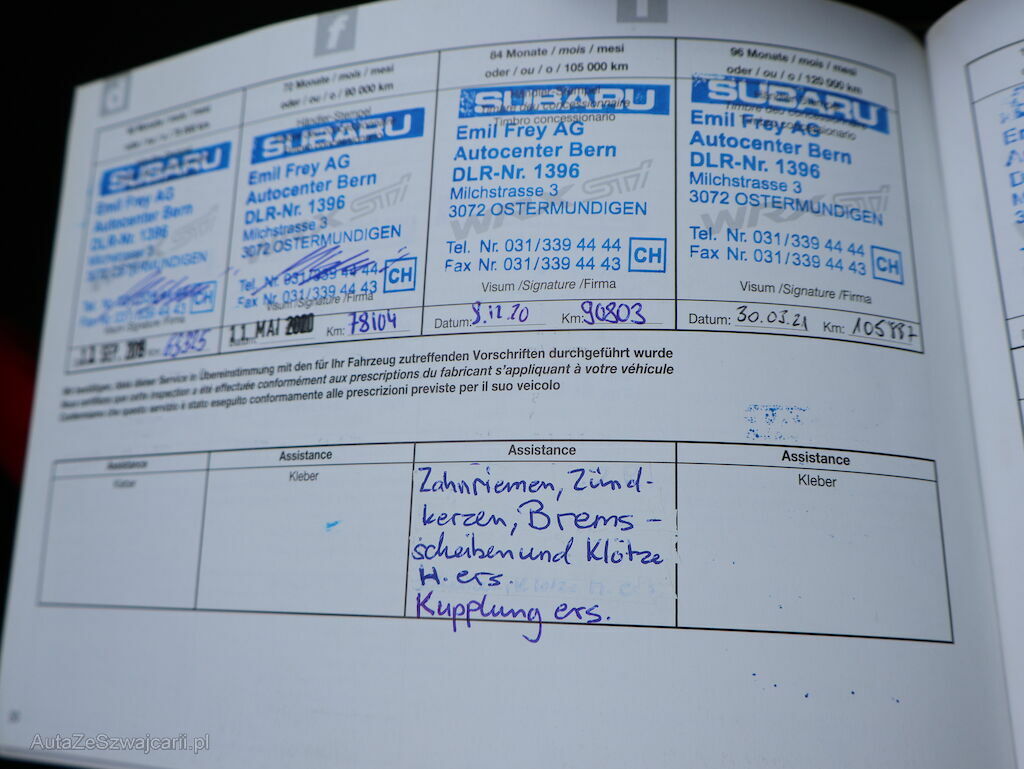 f
72 Monate / mois / mesi
oder / ou / o / 90 000 km
Händler-Stempel
Timbro concessionario
SUBARU
Emil Frey AG
Autocenter Bern
DLR-Nr. 1396
Milchstrasse 3
3072 OSTERMUNDIGEN
Tel. Nr. 031/339 44 44
Fax Nr. 031/339 44 43
CH
Visum /Signature /Firma
11. MAI 2020 Km: 78104
84 Monate / mois / mesi
oder / ou / o / 105 000 km
Händler-Stempel
Timbre du concessionnaire
Timbro concessionario
SUBARU
Emil Frey AG
Autocenter Bern
DLR-Nr. 1396
Milchstrasse 3
3072 OSTERMUNDIGEN
WRX STI
Tel. Nr. 031/339 44 44
Fax Nr. 031/339 44 43
CH
Visum /Signature /Firma
Datum: 8.12.20 Km: 90803
96 Monate / mois / mesi
oder / ou / o / 120 000 km
Timbre du concessionnaire
Timbro concessionario
SUBARU
Emil Frey AG
Autocenter Bern
DLR-Nr. 1396
Milchstrasse 3
3072 OSTERMUNDIGEN
WRX STI
Tel. Nr. 031/339 44 44
Fax Nr. 031/339 44 43
CH
Visum /Signature /Firma
Datum: 30.03.21 Km: 105887
SUBARU
Emil Frey AG
Autocenter Bern
DLR-Nr. 1396
Milchstrasse 3
3072 OSTERMUNDIGEN
CH
Visum /Signature /Firma
Wir bestätigen, dass dieser Service in Übereinstimmung mit den für Ihr Fahrzeug zutreffenden Vorschriften durchgeführt wurde
Nous certifions que cette inspection a été effectuée conformément aux prescriptions du fabricant s'appliquant à votre véhicule
Confermiamo che questo servizio è stato eseguito conformamente alle prescrizioni previste per il suo veicolo
Assistance Assistance Assistance Assistance
Kleber Kleber Kleber
Zahnriemen, Zünd-
kerzen, Brems-
scheiben und Klötze
H. ers.
Kupplung ers.
AutaZeSzwajcarii.pl